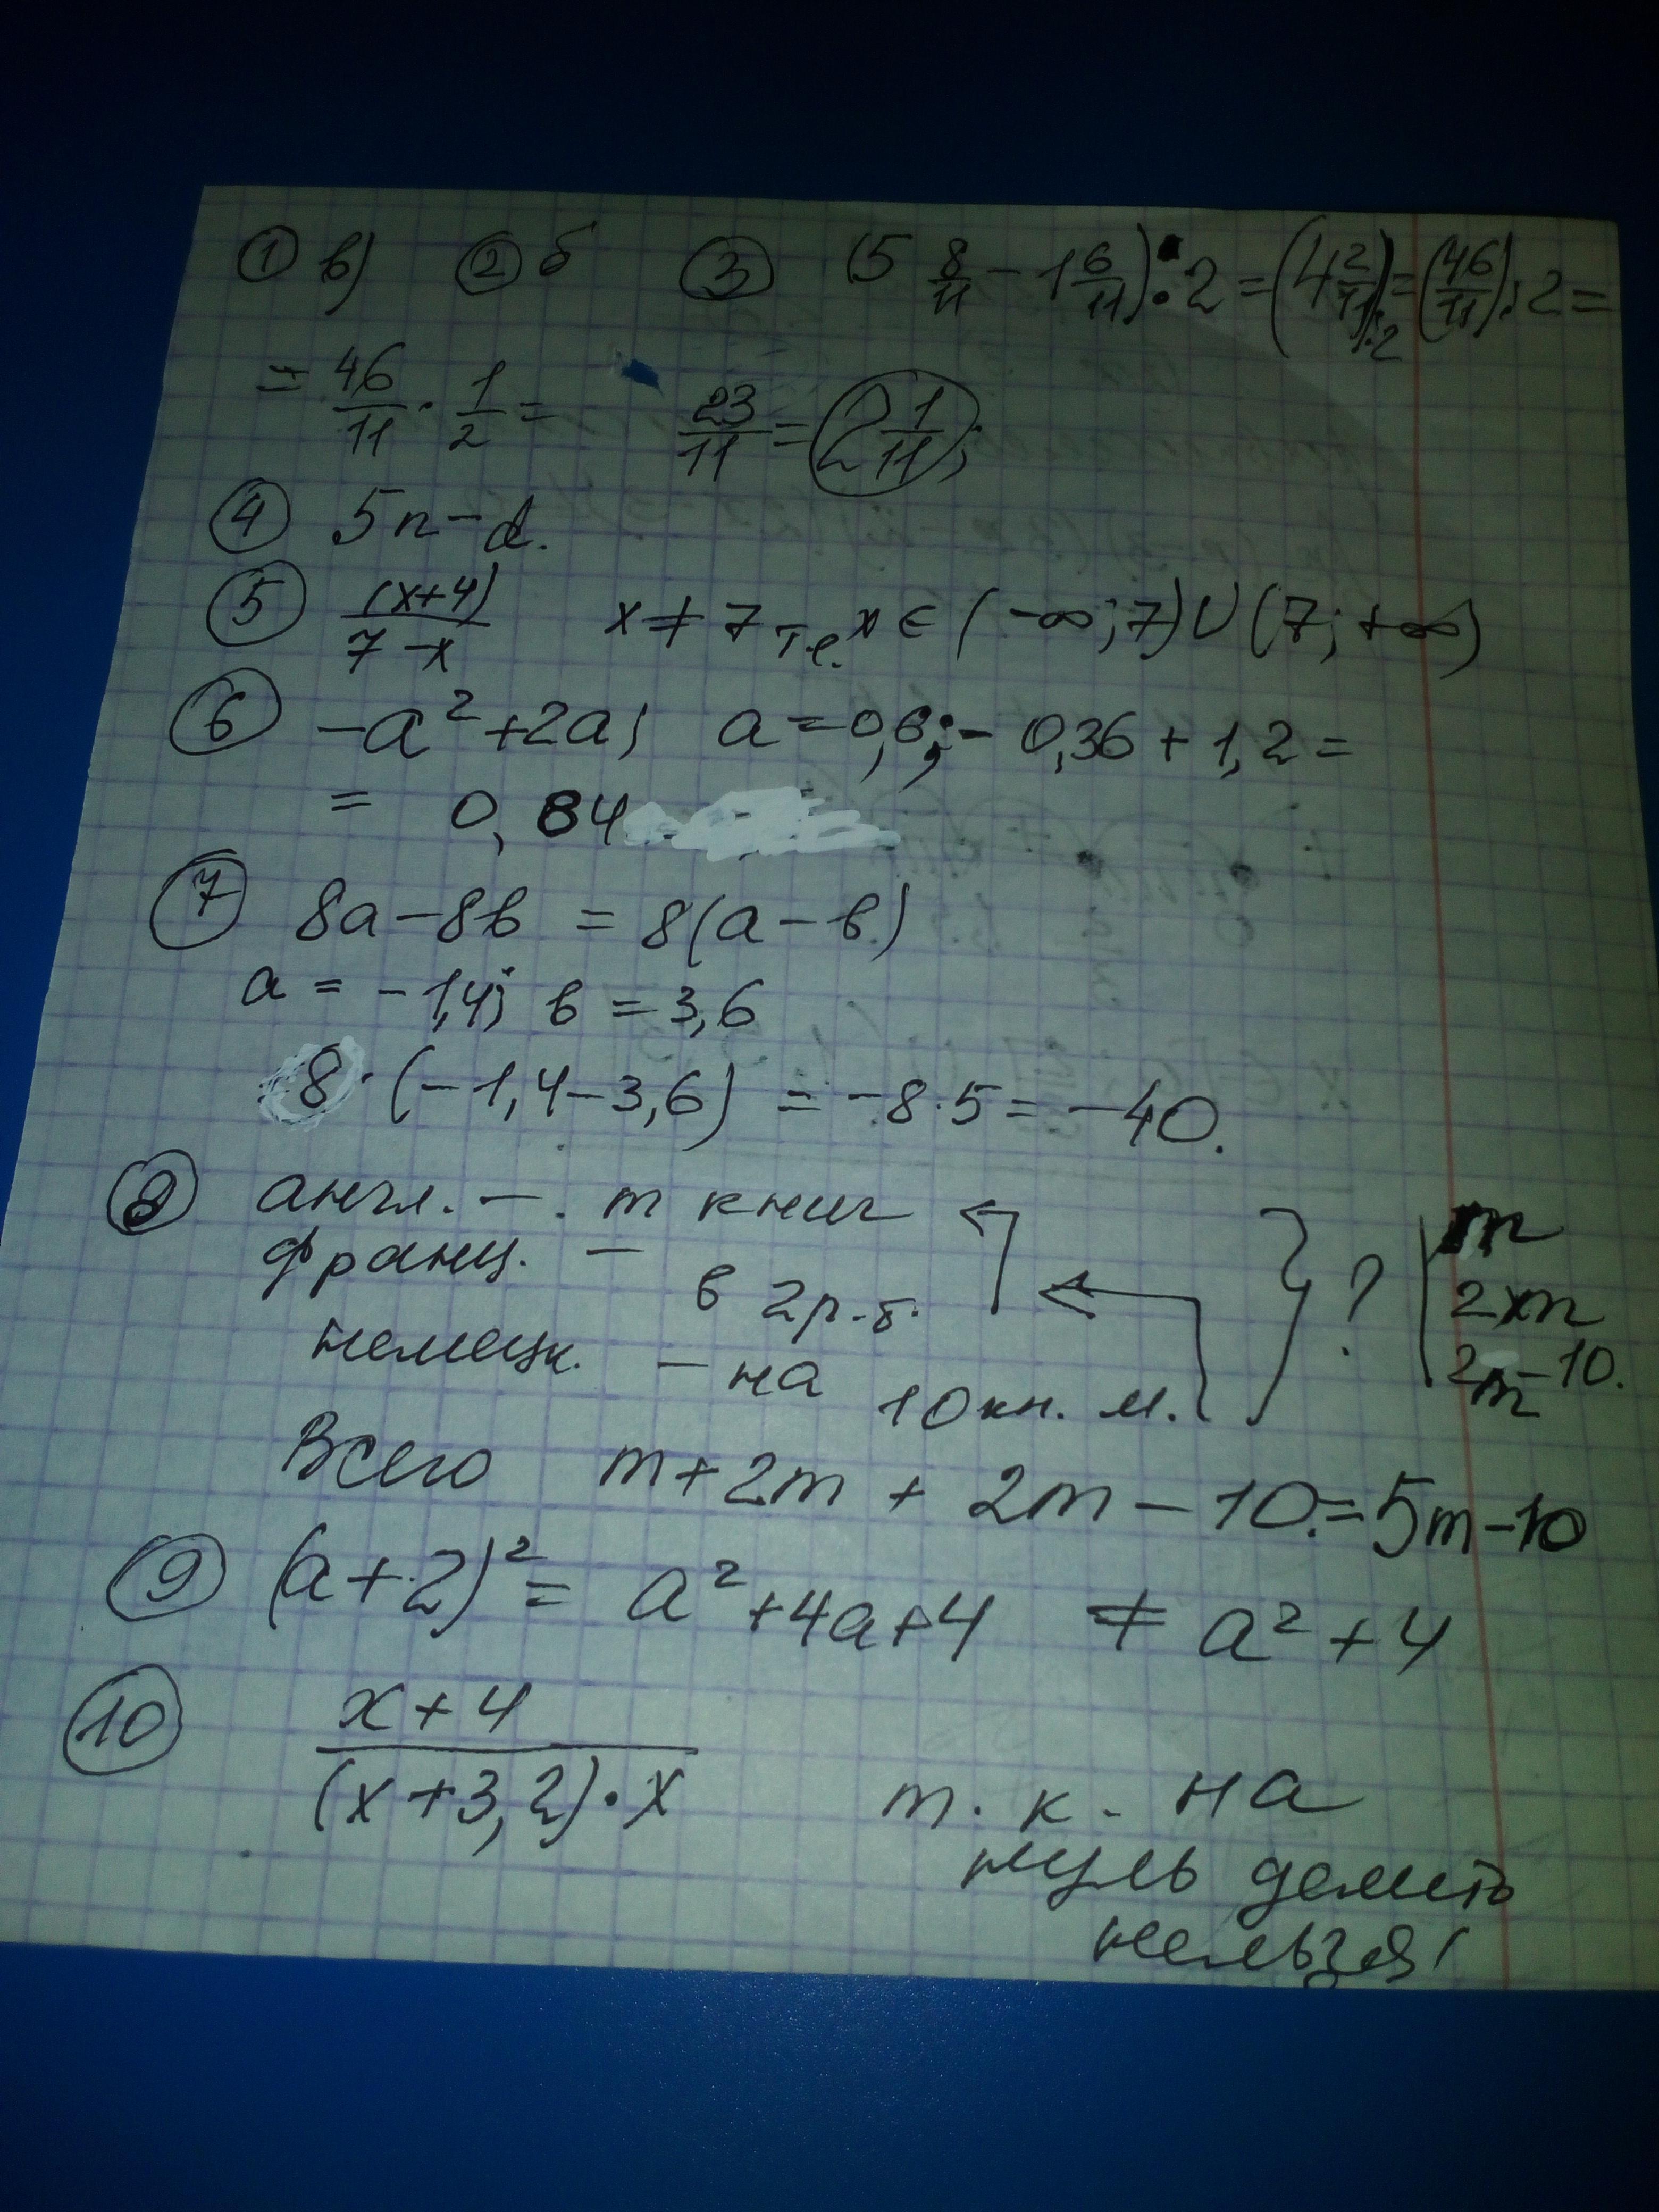 ① в) ② б ③ (5 8/11 − 1 6/11) : 2 = (4 2/11) : 2 = (46/11) : 2 =
= 46/11 · 1/2 = 23/11 = 2 1/11;
④ 5n − d.
⑤ (x+4)/(7−x) x ≠ 7 т.е. x ∈ (−∞; 7) ∪ (7; +∞)
⑥ −a² + 2a; a = 0,6; − 0,36 + 1,2 =
= 0,84
⑦ 8a − 8в = 8(a − в)
a = −1,4; в = 3,6
8 · (−1,4 − 3,6) = −8 · 5 = −40.
⑧ англ. — m книг } ? | m
франц. — в 2 р. б. 2×m
немецк. — на 10 кн. м. 2m − 10.
Всего m + 2m + 2m − 10. = 5m − 10
⑨ (a + 2)² = a² + 4a + 4 ≠ a² + 4
⑩ (x + 4)/((x + 3,2) · x) т. к. на
нуль делить
нельзя!